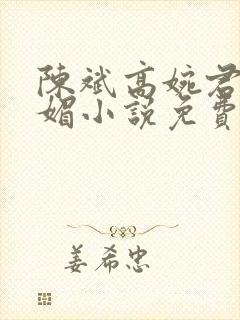 陳斌高婉君
媚小說免費
姜希忠